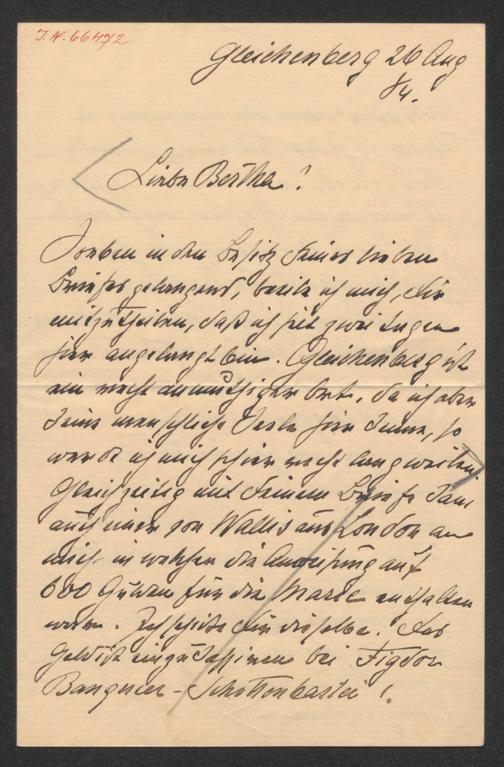 J.N. 66472
Gleichenberg 26 Aug
84.
Liebe Bertha!
Soeben in den Besitz Deines lieben
Briefes gelangend, beeile ich mich, Dir
mitzutheilen, daß ich seit zwei Tagen
hier angelangt bin. Gleichenberg ist
ein recht anmuthiger Ort, da ich aber
keine menschliche Seele hier kenne, so
werde ich mich hier recht langweilen
Gleichzeitig mit Deinem Briefe kam
auch einer von Wallis aus London an
mich in welchem die Anweisung auf
600 Gulden für die Marie enthalten
war. Ich schicke Dir dieselbe. Das
Geld ist einzukassieren bei Figdor
Banquier - Schottenbastei!